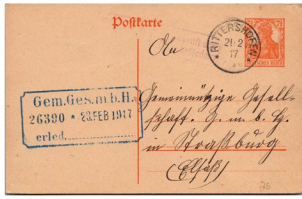 Postkarte
RITTERSHOFEN
21 2
17
An
Gem.Ges.m.b.H.
26390 * 23.FEB 1917
erled.
Gemeinnützige Gesell-
schaft G. m. b. H.
in Straßburg
(Elsaß)